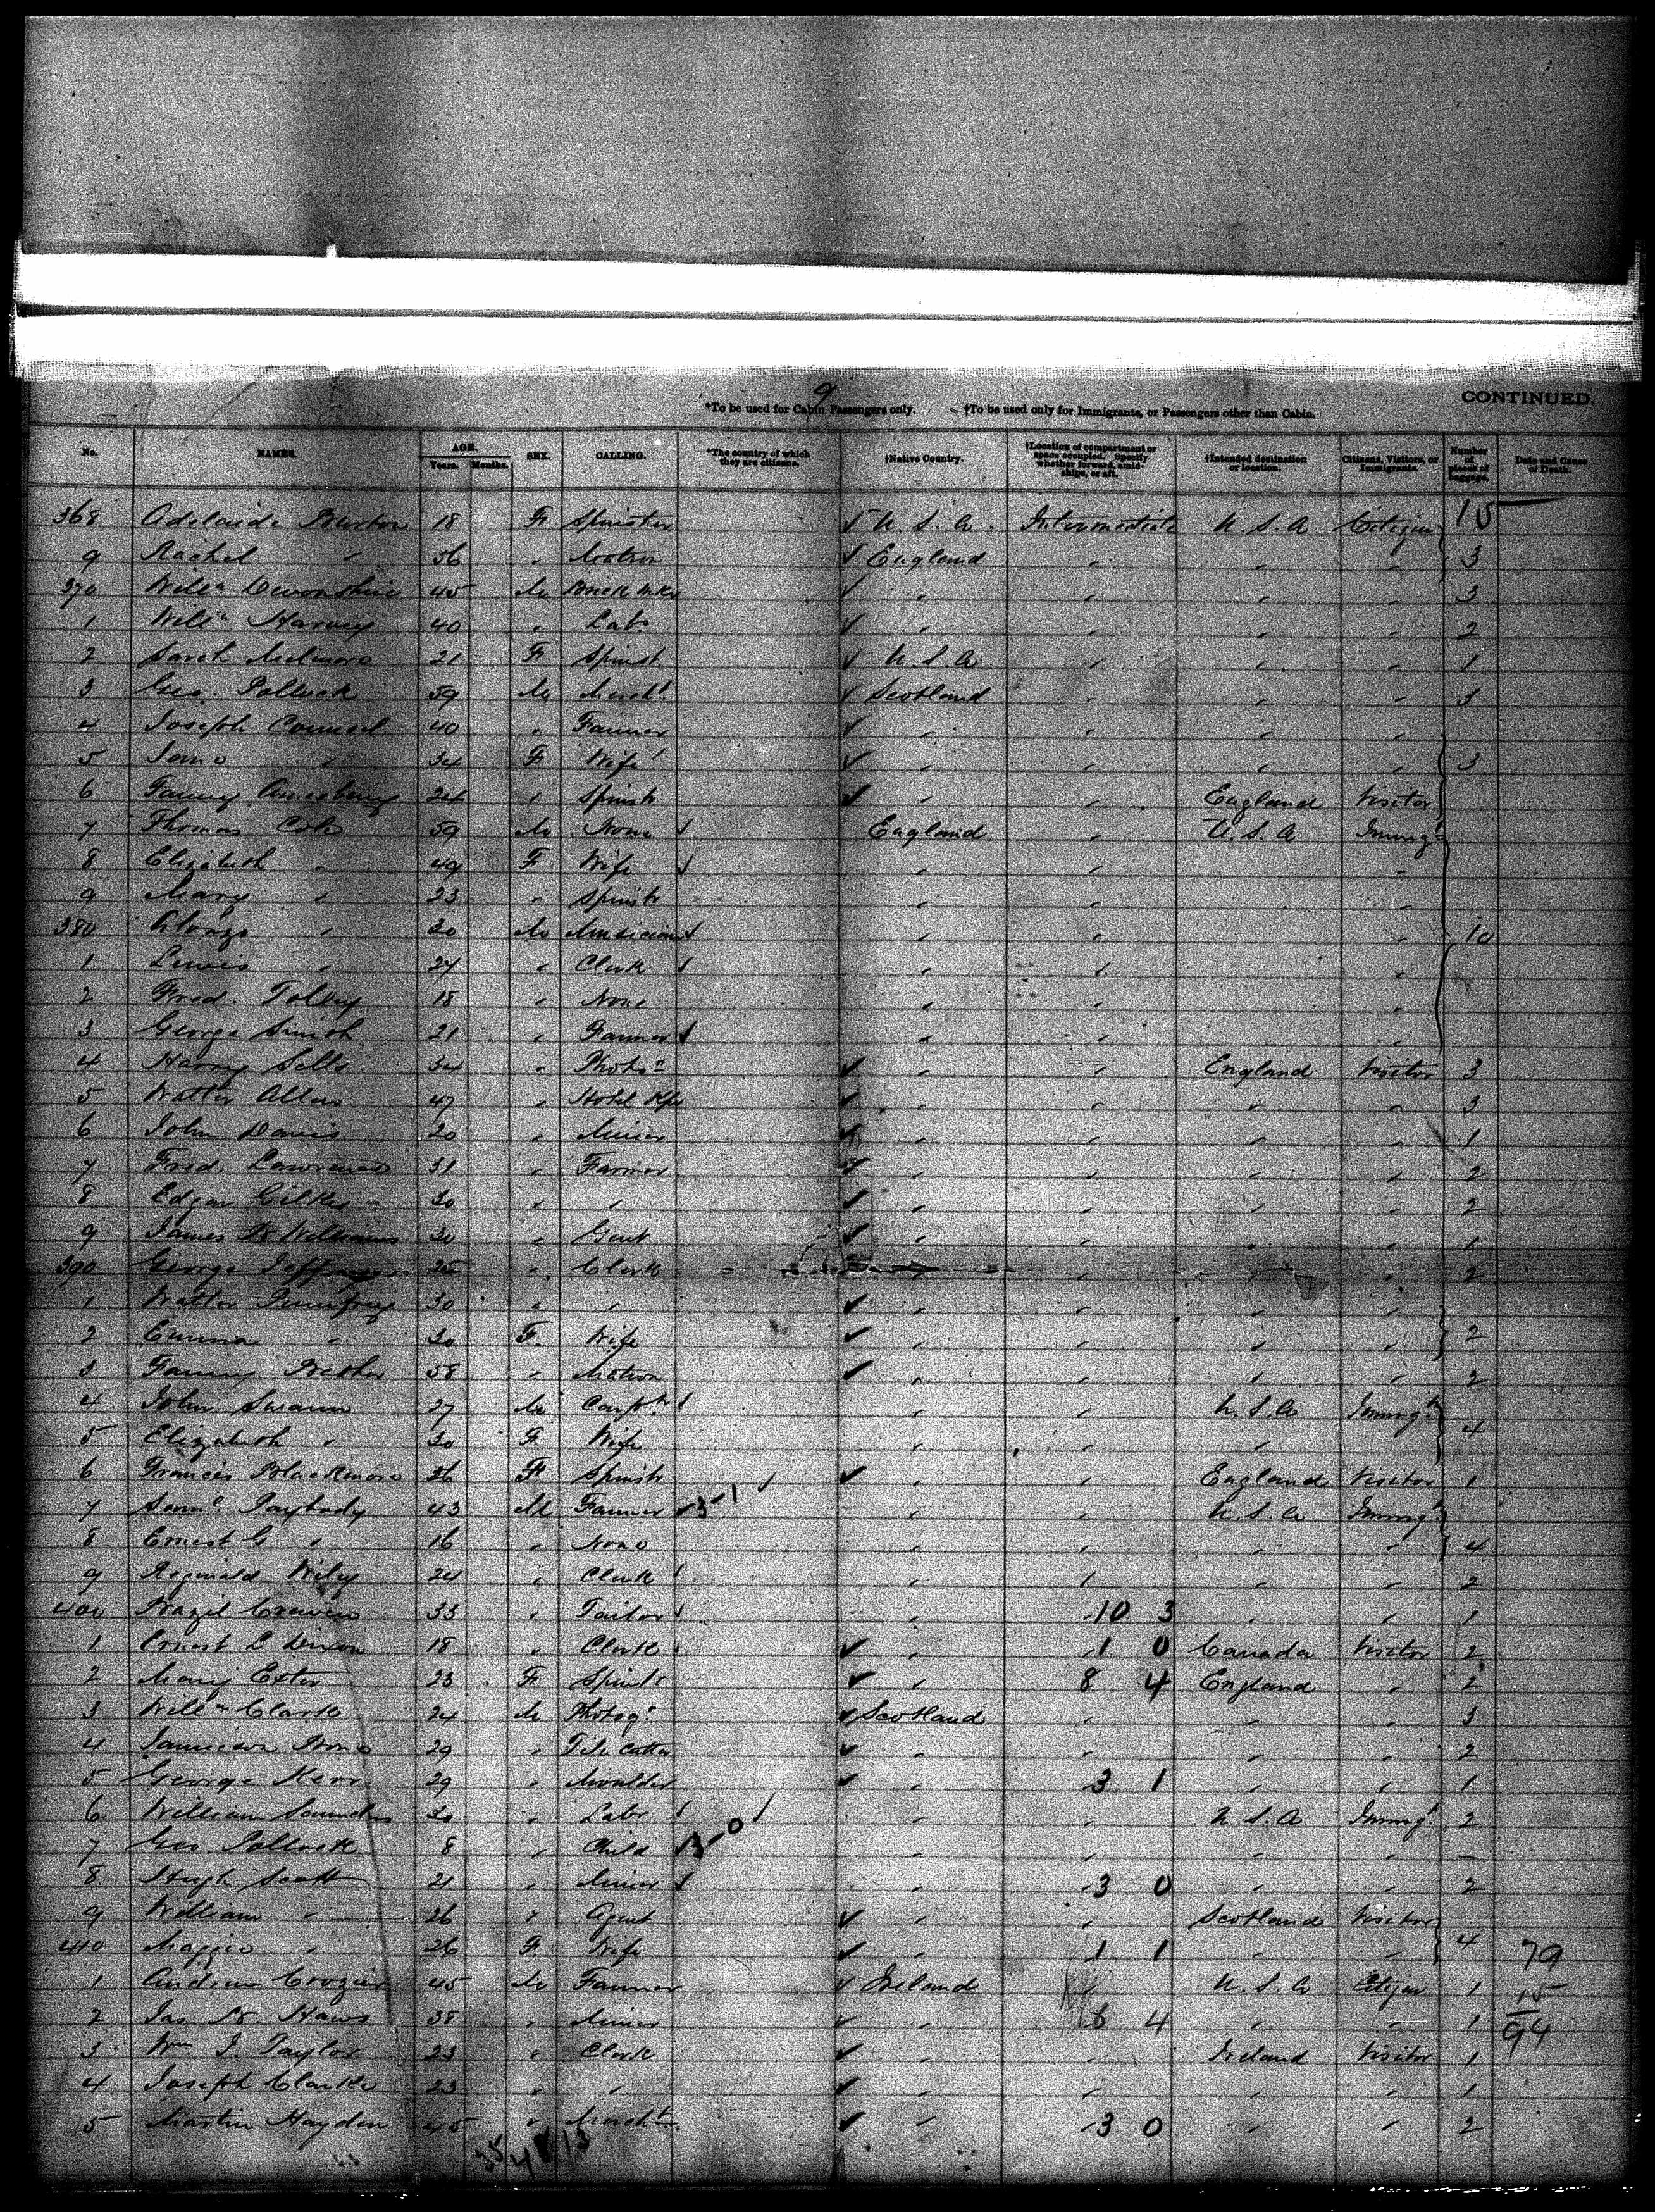 9
CONTINUED.
*To be used for Cabin Passengers only. †To be used only for Immigrants, or Passengers other than Cabin.
No. NAMES. AGE. Years. Months. SEX. CALLING. *The country of which they are citizens. †Native Country. †Location of compartment or space occupied. Specify whether forward, amidships, or aft. †Intended destination or location. Citizens, Visitors, or Immigrants. Number of pieces of baggage. Date and Cause of Death.
368 Adelaide Burton 18 F Spinster U.S.A. Intermediate U.S.A Citizen 15
9 Rachel " 56 " Matron England " " " 3
370 Willm Devonshire 45 M Brick mkr " " " " 3
1 Willm Harvey 40 " Labr " " " " 2
2 Sarah 21 F Spinst U.S.A " " " 1
3 Geo. Pollock 59 M Mercht Scotland " " " 3
4 Joseph Counsel 40 " Farmer " " " "
5 Jane " 34 F Wife " " " " 3
6 Fanny Amesbury 24 " Spinstr " " England Visitor
7 Thomas Cole 59 M None England " U.S.A Immigt
8 Elizabeth " 49 F Wife " " "
9 Mary " 23 " Spinstr " " "
380 Alonzo " 30 M Musician " " " 10
1 Lewis " 27 " Clerk " " "
2 Fred. Tolley 18 " None " " "
3 George Smith 21 " Farmer " " "
4 Harry Sells 34 " Photor " " England Visitor 3
5 Walter Allen 47 " Hotel Kpr " " " " 3
6 John Davis 20 " Miner " " " " 1
7 Fred. Lawrence 31 " Farmer " " " " 2
8 Edgar Gilkes 30 " " " " " " 2
9 James W Williams 30 " Gent " " " " 1
390 George 25 " Clerk " " " " 2
1 Walter Pumfrey 30 " " " " " "
2 Emma " 30 F. Wife " " " " 2
3 Fanny 58 " Matron " " " " 2
4 John Swann 27 M Carptr " " U.S.A Immigt
5 Elizabeth " 30 F Wife " " " 4
6 Francis Blackmore 36 F Spinstr " " England Visitor 1
7 Saml Paybody 43 M Farmer 3-1 " " U.S.A Immigt
8 Ernest G. " 16 " None " " " " 4
9 Reginald Wiley 24 " Clerk " " " " 2
400 Bazil Craven 33 " Tailor " 10 3 " " 1
1 Ernest L Dixon 18 " Clerk " 1 0 Canada Visitor 2
2 Mary Exter 23 F Spinstr " 8 4 England " 2
3 Willm Clark 24 M Photogr Scotland " " " 3
4 Jamieson 29 " " " " " 2
5 George Kerr 29 " Moulder " 3 1 " " 1
6 William Saunders 30 " Labr " " U.S.A Immigt 2
7 Geo. Pollock 8 " Child 3-0 " " " " –
8 Hugh Scott 21 " Miner " 3 0 " " 2
9 William " 26 " Agent " " Scotland Visitor
410 Maggie " 26 F Wife " 1 1 " " 4 79
1 Andrew Crozier 45 M Farmer Ireland " U.S.A Citizen 1 15
2 Jas 38 " Miner " 6 4 " " 1 94
3 Wm J. Taylor 23 " Clerk " " Ireland Visitor 1
4 Joseph Clarke 23 " " " " " " 1
5 Martin Hayden 45 " Mercht " 3 0 " " 2
35 48 13